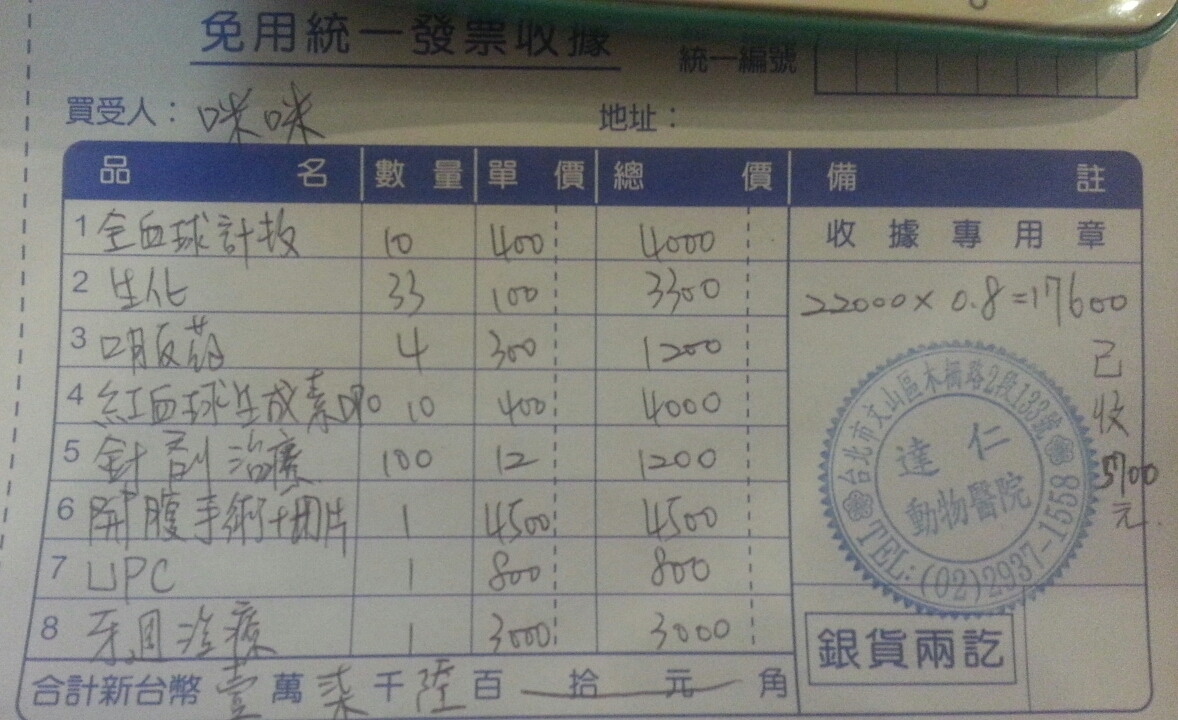 免用統一發票收據
統一編號
買受人：咪咪 地址：
品名 數量 單價 總價 備註
1 全血球計數 10 400 4000
收據專用章
2 生化 33 100 3300
22000×0.8=17600
3 口服葯 4 300 1200
已收5700元
4 紅血球生成素 10 400 4000
5 針劑治療 100 12 1200
6 開腹手術+切片 1 4500 4500
7 UPC 1 800 800
8 牙周治療 1 3000 3000
台北市文山區木柵路2段133號
達仁
動物醫院
TEL:(02)2937-1558
銀貨兩訖
合計新台幣 壹萬柒千陸百拾元角